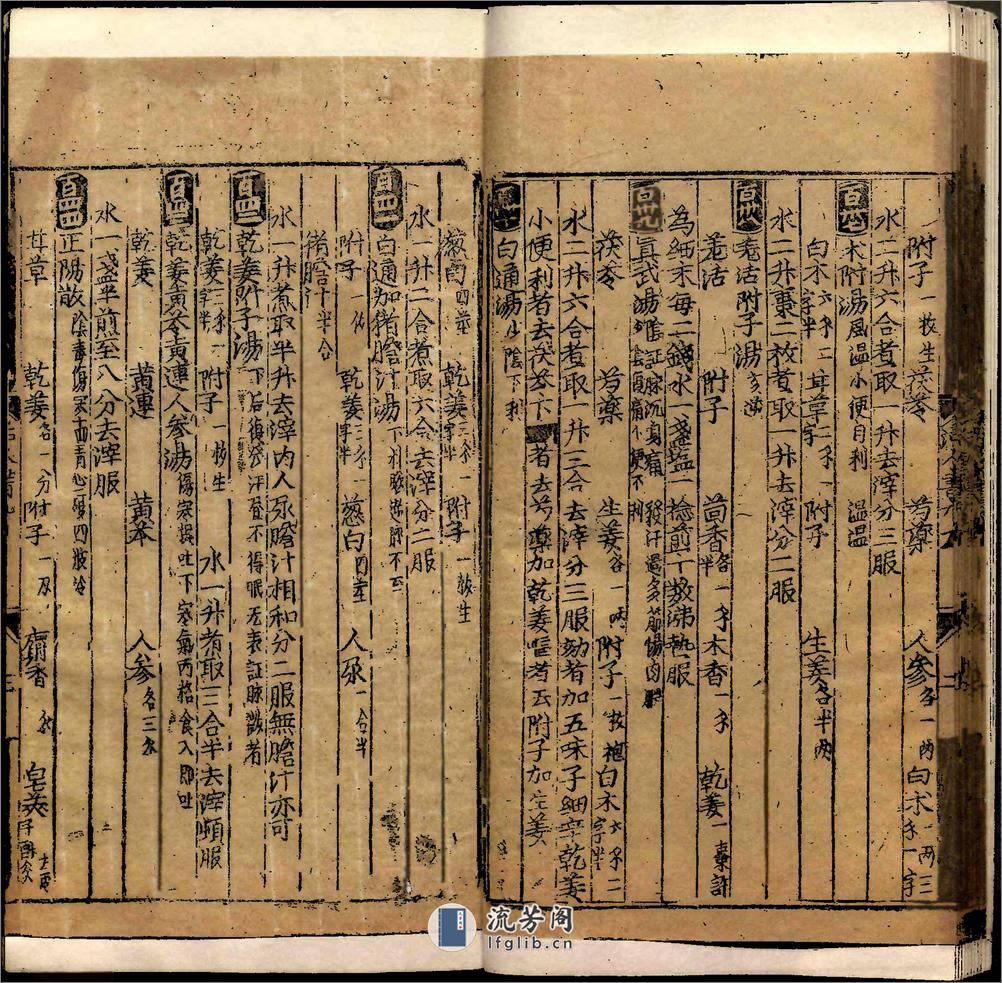 附子一枚生 茯苓 芍藥 人參各一兩 白术一兩三子一字
水二升六合者取一升去滓分三服
百卅七 术附湯風濕小便自利
白术六子二字半 甘草二子一字 附子 生姜各半兩
水二升棗二枚者取一升去滓分二服
百卅八 羌活附子湯亥逆
羌活 附子 茴香各半 一子 木香一子 乾姜一棗許
為細末每二錢水一盞塩一捻煎一二数沸熱服
百卅九 真武湯陰証脉沉身痛 發汗過多筋傷肉
茯苓 芍藥 生姜各一兩 附子一枚炮 白术六子二字半
水二升六合者取一升三合去滓分三服効者加五味子細辛乾姜
小便利者去茯苓下 者去芍藥加乾姜嘔者去附子加生姜
白通湯少陰下利
葱白四莖 乾姜三子一字半 附子一枚生
水一升二合煮取六合去滓分二服
百四一 白通加猪膽汁湯下利脉
附子一枚 乾姜三子一字半 葱白四莖 人尿一合半
猪膽半合
水一升煮取半升去滓内人尿膽汁相和分二服無膽汁亦可
百四二 乾姜附子湯下后復發汗昼不得眠无表証脉微者
乾姜三子一字半 附子一枚生 水一升者取三合半去滓頓服
百四三 乾姜黄芩黄連人參湯傷寒誤吐下寒氣丙格食入即吐
乾姜 黄連 黄芩 人參各三分
水一盞半煎至八分去滓服
百四四 正陽散陰毒傷寒面青心硬四肢冷
甘草 乾姜各一分 附子一 麝香 皂莢
流芳阁
lfglib.cn